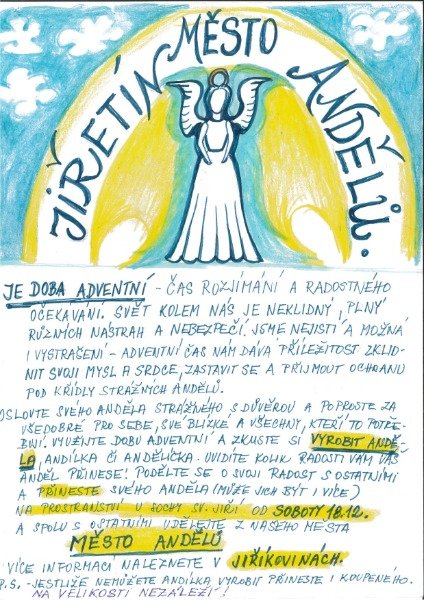 JIŘETÍN MĚSTO ANDĚLŮ.
JE DOBA ADVENTNÍ - ČAS ROZJÍMÁNÍ A RADOSTNÉHO
OČEKÁVÁNÍ. SVĚT KOLEM NÁS JE NEKLIDNÝ, PLNÝ
RŮZNÝCH NÁSTRAH A NEBEZPEČÍ. JSME NEJISTÍ A MOŽNÁ
I VYSTRAŠENÍ - ADVENTNÍ ČAS NÁM DÁVÁ PŘÍLEŽITOST ZKLID-
NIT SVOJI MYSL A SRDCE, ZASTAVIT SE A PŘIJMOUT OCHRANU
POD KŘÍDLY STRÁŽNÝCH ANDĚLŮ.
OSLOVTE SVÉHO ANDĚLA STRÁŽNÉHO S DŮVĚROU A POPROSTE ZA
VŠEDOBRÉ PRO SEBE, SVÉ BLÍZKÉ A VŠECHNY, KTEŘÍ TO POTŘE-
BUJÍ. VYUŽIJTE DOBU ADVENTNÍ A ZKUSTE SI VYROBIT ANDĚ-
LA, ANDÍLKA ČI ANDĚLÍČKA. UVIDÍTE KOLIK RADOSTI VÁM VÁŠ
ANDĚL PŘINESE! PODĚLTE SE O SVOJI RADOST S OSTATNÍMI
A PŘINESTE SVÉHO ANDĚLA (MŮŽE JICH BÝT I VÍCE)
NA PROSTRANSTVÍ U SOCHY SV. JIŘÍ OD SOBOTY 18.12.
A SPOLU S OSTATNÍMI UDĚLEJTE Z NAŠEHO MĚSTA
MĚSTO ANDĚLŮ
VÍCE INFORMACÍ NALEZNETE V JIŘÍKOVINÁCH.
P.S. - JESTLIŽE NEMŮŽETE ANDÍLKA VYROBIT PŘINESTE I KOUPENÉHO.
NA VELIKOSTI NEZÁLEŽÍ!